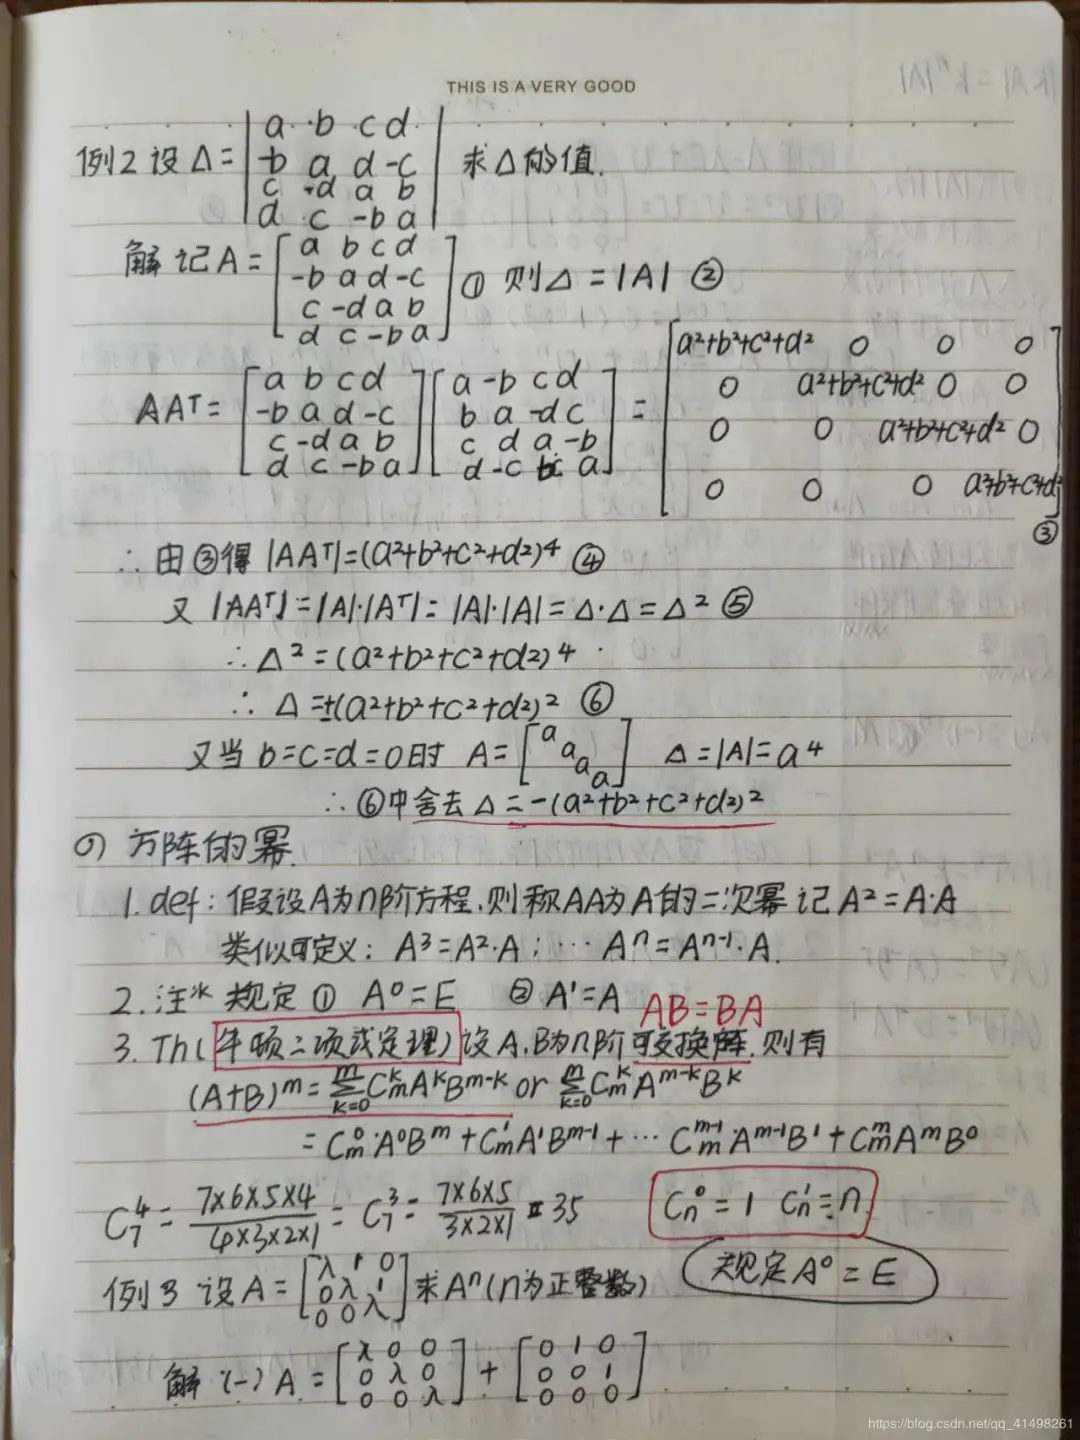 THIS IS A VERY GOOD
|kA|=kⁿ|A|
例2 设 Δ= | a b c d | 求Δ的值.
| -b a d -c |
| c -d a b |
| d c -b a |
解 记A= [ a b c d ] ① 则Δ=|A| ②
[ -b a d -c ]
[ c -d a b ]
[ d c -b a ]
AAᵀ= [ a b c d ] [ a -b c d ] = [ a²+b²+c²+d² 0 0 0 ]
[ -b a d -c ] [ b a -d c ] [ 0 a²+b²+c²+d² 0 0 ]
[ c -d a b ] [ c d a -b ] [ 0 0 a²+b²+c²+d² 0 ]
[ d c -b a ] [ d -c b a ] [ 0 0 0 a²+b²+c²+d² ]
③
∴ 由③得 |AAᵀ|=(a²+b²+c²+d²)⁴ ④
又 |AAᵀ|=|A|·|Aᵀ|=|A|·|A|=Δ·Δ=Δ² ⑤
∴ Δ²=(a²+b²+c²+d²)⁴
∴ Δ=±(a²+b²+c²+d²)² ⑥
又当 b=c=d=0时 A= [ a a a a ] Δ=|A|=a⁴
∴ ⑥中舍去 Δ=-(a²+b²+c²+d²)²
方阵的幂.
1. def: 假设A为n阶方程,则称AA为A的二次幂 记A²=A·A
类似可定义: A³=A²·A ; … Aⁿ=Aⁿ⁻¹·A.
2. 注* 规定 ① A⁰=E ② A¹=A AB=BA
3. Th(牛顿二项式定理)设A.B为n阶可交换解.则有
(A+B)ᵐ=∑ᵐₖ₌₀CₘᵏAᵏBᵐ⁻ᵏ or ∑ᵐₖ₌₀CₘᵏAᵐ⁻ᵏBᵏ
=Cₘ⁰·A⁰Bᵐ+Cₘ¹A¹Bᵐ⁻¹+…Cₘᵐ⁻¹·Aᵐ⁻¹B¹+CₘᵐAᵐB⁰
C₇⁴=7×6×5×4/4×3×2×1=C₇³=7×6×5/3×2×1=35 Cₙ⁰=1 Cₙ¹=n
规定A⁰=E
例3 设A= [ λ 1 0 ] 求Aⁿ(n为正整数)
[ 0 λ 1 ]
[ 0 0 λ ]
解 (一) A = [ λ 0 0 ] + [ 0 1 0 ]
[ 0 λ 0 ] [ 0 0 1 ]
[ 0 0 λ ] [ 0 0 0 ]
https://blog.csdn.net/qq_41498261